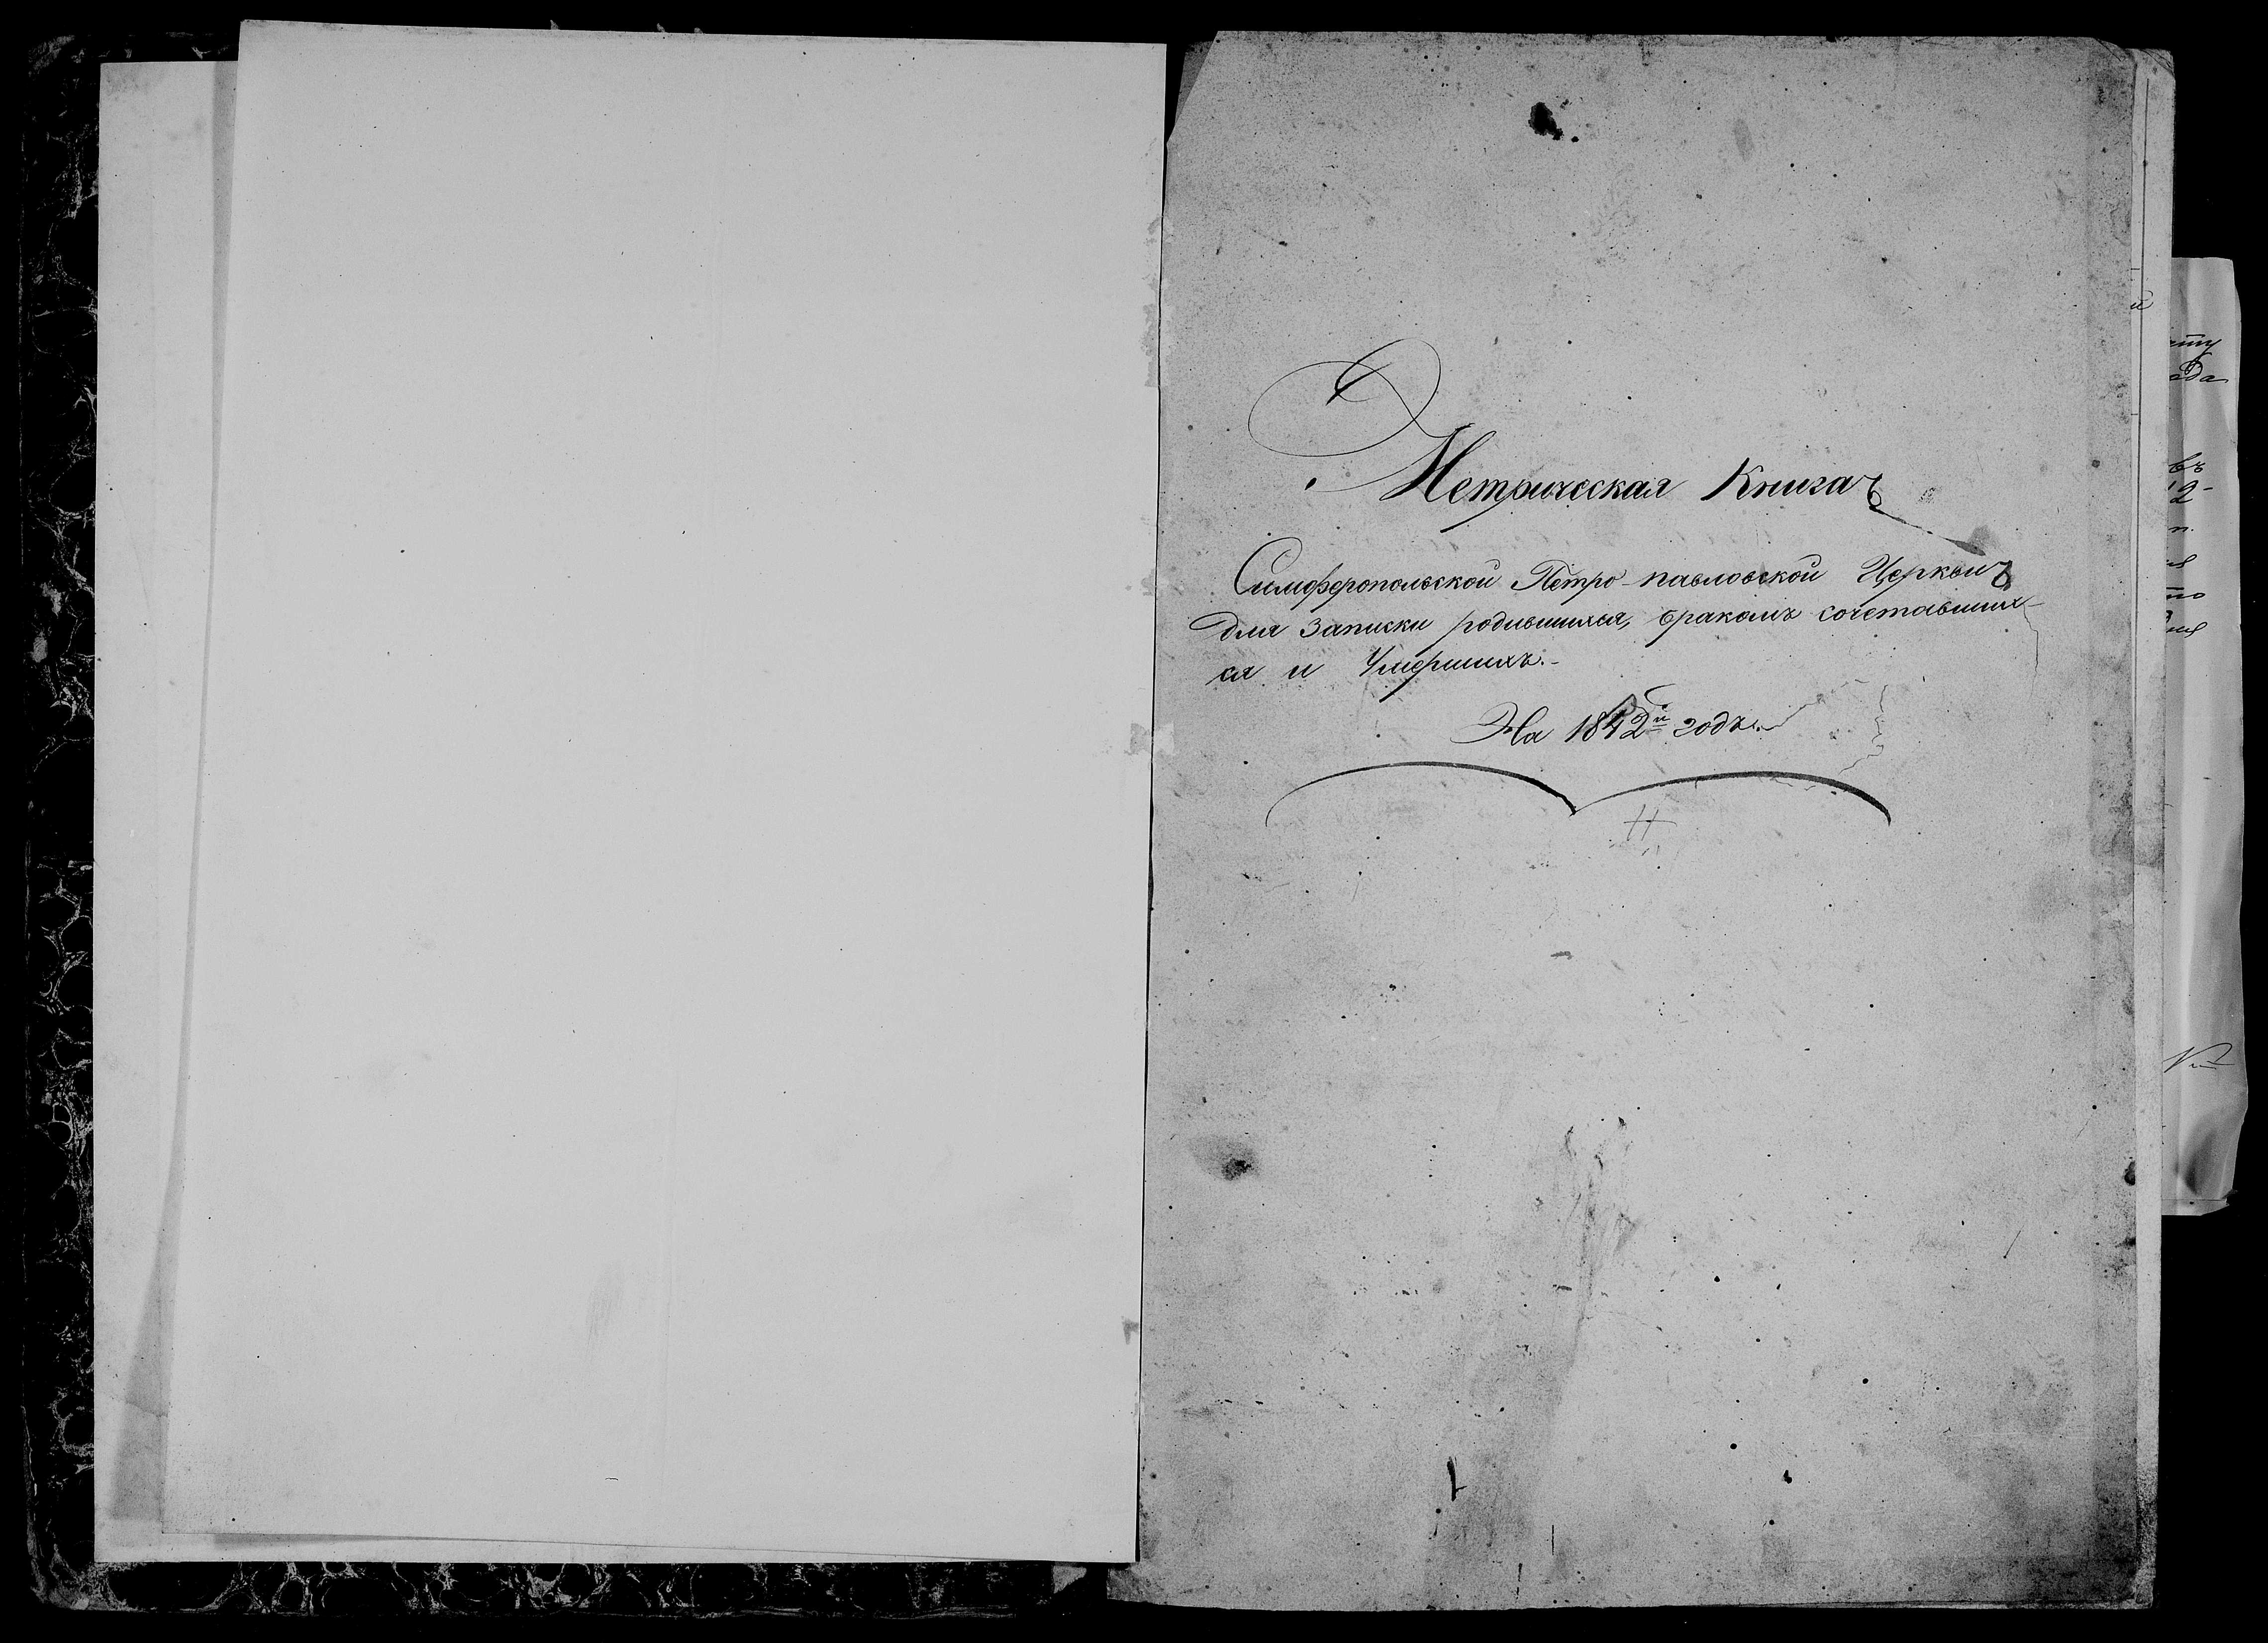 Метрическая Книга
Симферопольской Петро-павловской Церкви
для записки родившихся, бракомъ сочетавших-
ся и Умершихъ.-
На 1842й годъ.
й
ту
ода
въ
12-
п.